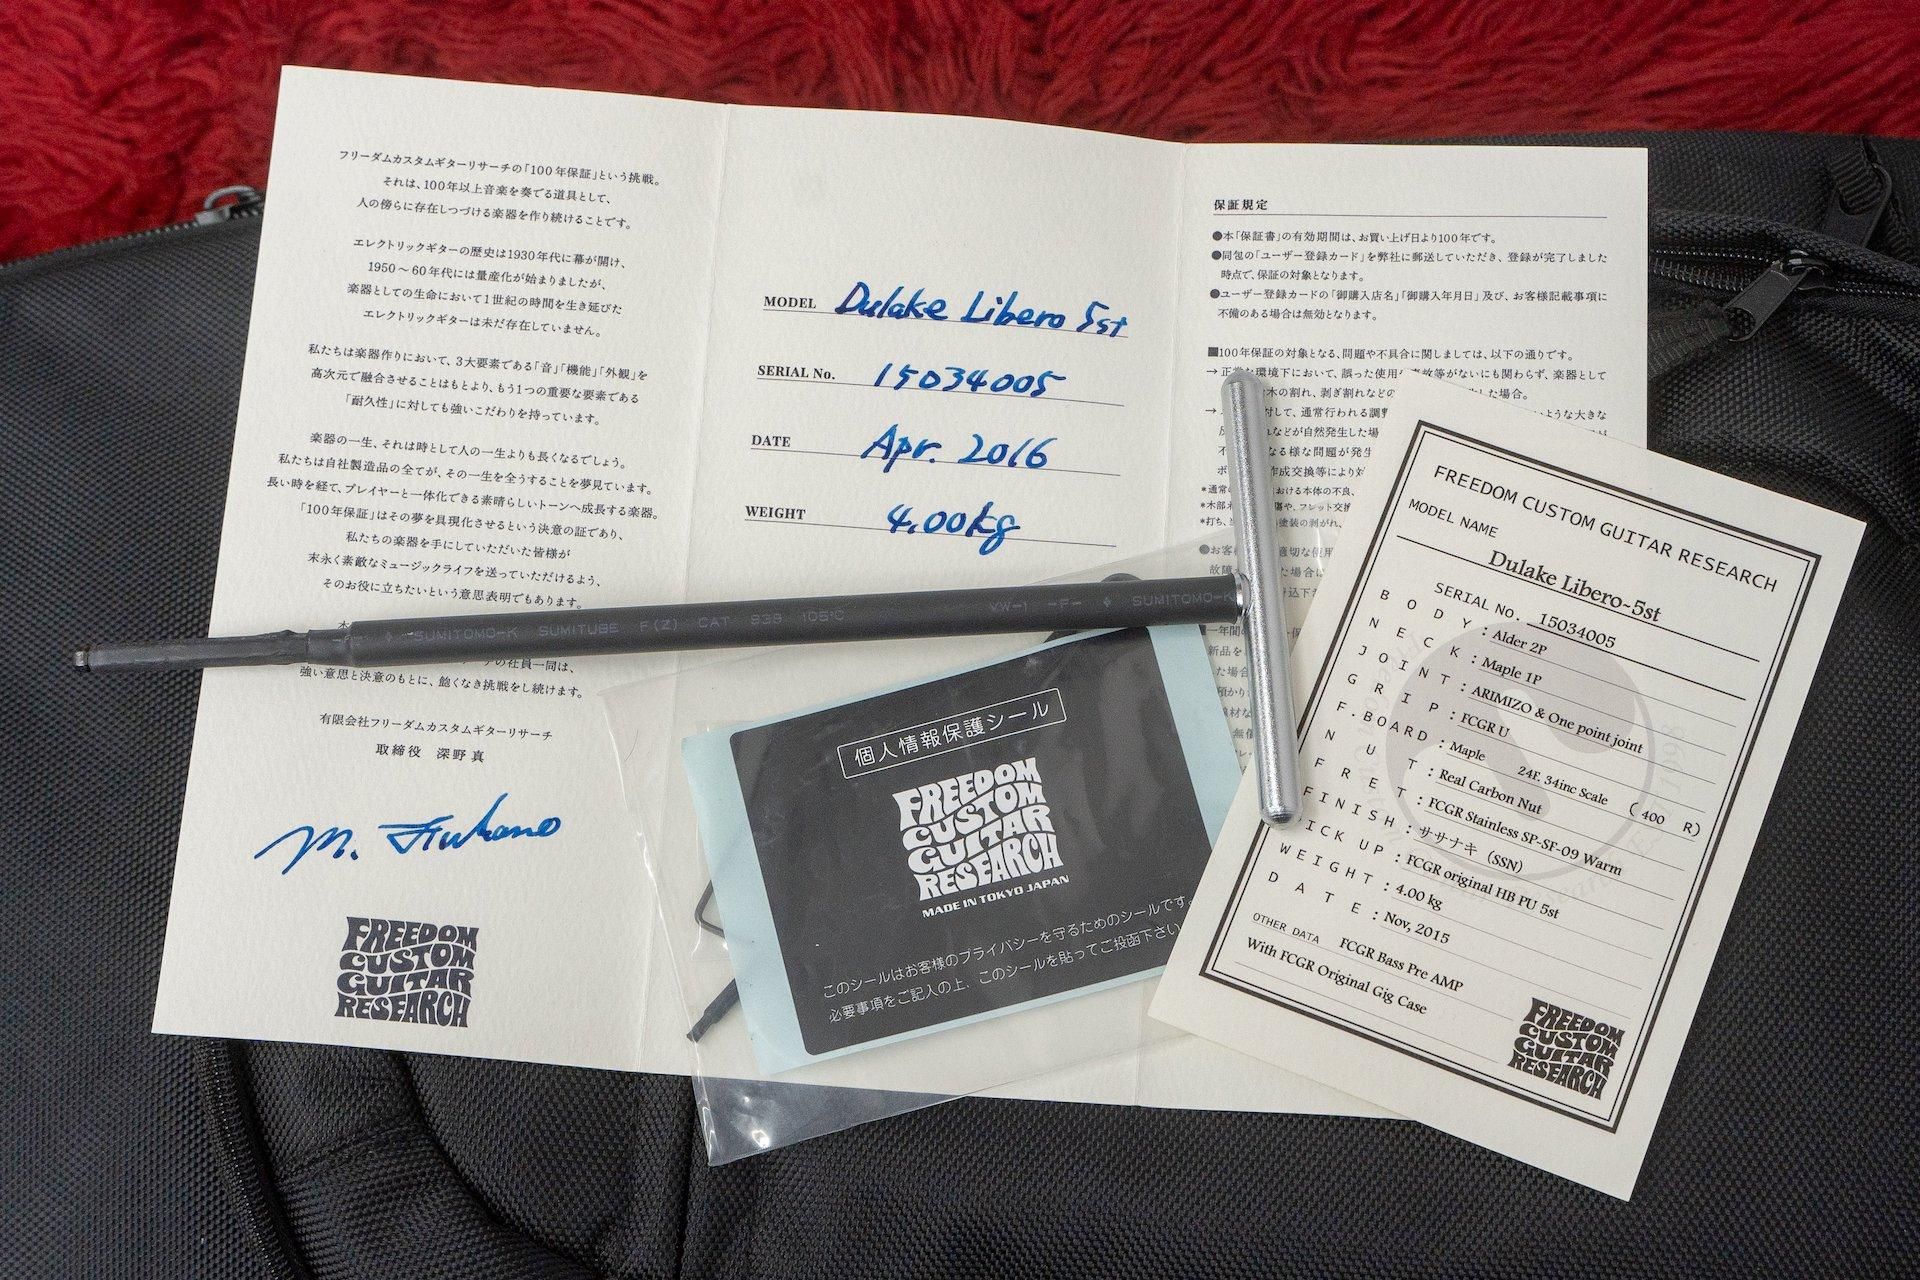 フリーダムカスタムギターリサーチの「100年保証」という挑戦。
それは、100年以上音楽を奏でる道具として、
人の傍らに存在しつづける楽器を作り続けることです。
エレクトリックギターの歴史は1930年代に幕が開け、
1950〜60年代には量産化が始まりましたが、
楽器としての生命において1世紀の時間を生き延びた
エレクトリックギターは未だ存在していません。
私たちは楽器作りにおいて、3大要素である「音」「機能」「外観」を
高次元で融合させることはもとより、もう1つの重要な要素である
「耐久性」に対しても強いこだわりを持っています。
楽器の一生、それは時として人の一生よりも長くなるでしょう。
私たちは自社製造品の全てが、その一生を全うすることを夢見ています。
長い時を経て、プレイヤーと一体化できる素晴らしいトーンへ成長する楽器。
「100年保証」はその夢を具現化させるという決意の証であり、
私たちの楽器を手にしていただいた皆様が
末永く素敵なミュージックライフを送っていただけるよう、
そのお役に立ちたいという意思表明でもあります。
の社員一同は、
強い意思と決意のもとに、飽くなき挑戦をし続けます。
有限会社フリーダムカスタムギターリサーチ
取締役 深野 真
M. Fukano
FREEDOM
CUSTOM
GUITAR
RESEARCH
MODEL Dulake Libero 5st
SERIAL No. 15034005
DATE Apr. 2016
WEIGHT 4.00kg
保証規定
●本「保証書」の有効期間は、お買い上げ日より100年です。
●同包の「ユーザー登録カード」を弊社に郵送していただき、登録が完了しました
時点で、保証の対象となります。
●ユーザー登録カードの「御購入店名」「御購入年月日」及び、お客様記載事項に
不備のある場合は無効となります。
■100年保証の対象となる、問題や不具合に関しましては、以下の通りです。
→ 正常な環境下において、誤った使用や事故等がないにも関わらず、楽器として
木の割れ、剥ぎ割れなどの した場合。
→ 対して、通常行われる調整 ような大きな
れなどが自然発生した場
なる様な問題が発生
作成交換等により対
*通常の おける本体の不良、
*木部 傷や、フレット交換
*打ち、 塗装の剥がれ、
●お客 適切な使用
故障 た場合は
SUMITOMO-K SUMITUBE F(Z) CAT 938 105°C VW-1 -F- SUMITOMO-K
個人情報保護シール
FREEDOM
CUSTOM
GUITAR
RESEARCH
MADE IN TOKYO JAPAN
このシールはお客様のプライバシーを守るためのシールです。
必要事項をご記入の上、このシールを貼ってご投函下さい
FREEDOM CUSTOM GUITAR RESEARCH
MODEL NAME
Dulake Libero-5st
SERIAL No. 15034005
BODY : Alder 2P
NECK : Maple 1P
JOINT : ARIMIZO & One point joint
GRIP : FCGR U
F.BOARD : Maple 24F. 34inc Scale ( 400 R)
NUT : Real Carbon Nut
FRET : FCGR Stainless SP-SF-09 Warm
FINISH : ササナキ (SSN)
PICK UP : FCGR original HB PU 5st
WEIGHT : 4.00 kg
DATE : Nov, 2015
OTHER DATA FCGR Bass Pre AMP
With FCGR Original Gig Case
FREEDOM
CUSTOM
GUITAR
RESEARCH